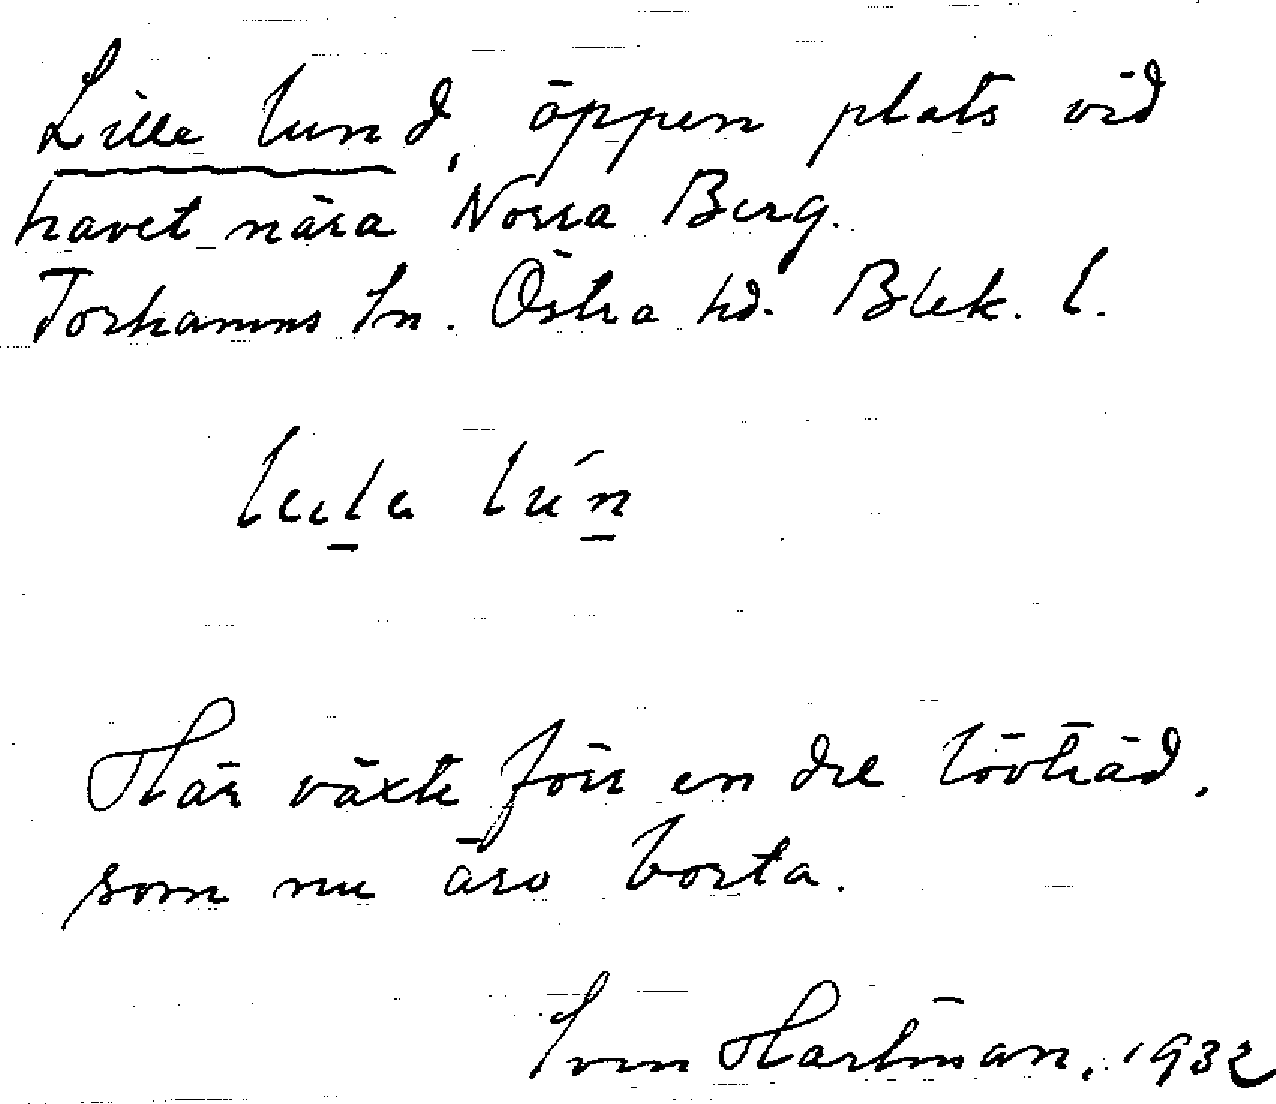 Lille lund, öppen plats vid
havet nära Norra Berg.
Torhamns sn. Östra hd. Blek. l.
Här växte förr en del lövträd,
som nu äro borta.
Sven Hartman, 1932